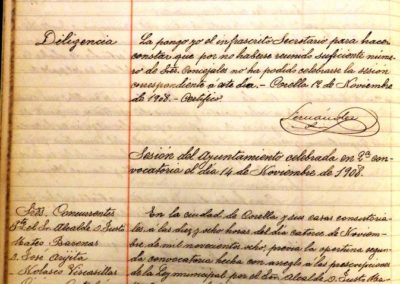 Diligencia
La pongo yo el infrascrito Secretario para hacer
constar que por no haberse reunido suficiente núme-
ro de Sres. Concejales no ha podido celebrarse la sesión
correspondiente a este día.- Corella 12 de Noviembre
de 1908.- Certifico
Fernández
Sesión del Ayuntamiento celebrada en 2ª con-
vocatoria el día 14 de Noviembre de 1908.
Sres. Concurrentes
Pte. el Sr. Alcalde D. Justo
Mateo Barenas
D. José Arjita
Nolasco Viscasillas
En la ciudad de Corella y sus casas consistoria-
les a las diez y ocho horas del día catorce de Noviem-
bre de mil novecientos ocho, previa la oportuna segun-
da convocatoria hecha con arreglo a las prescripciones
de la Ley municipal por el Sr. Alcalde D. Justo